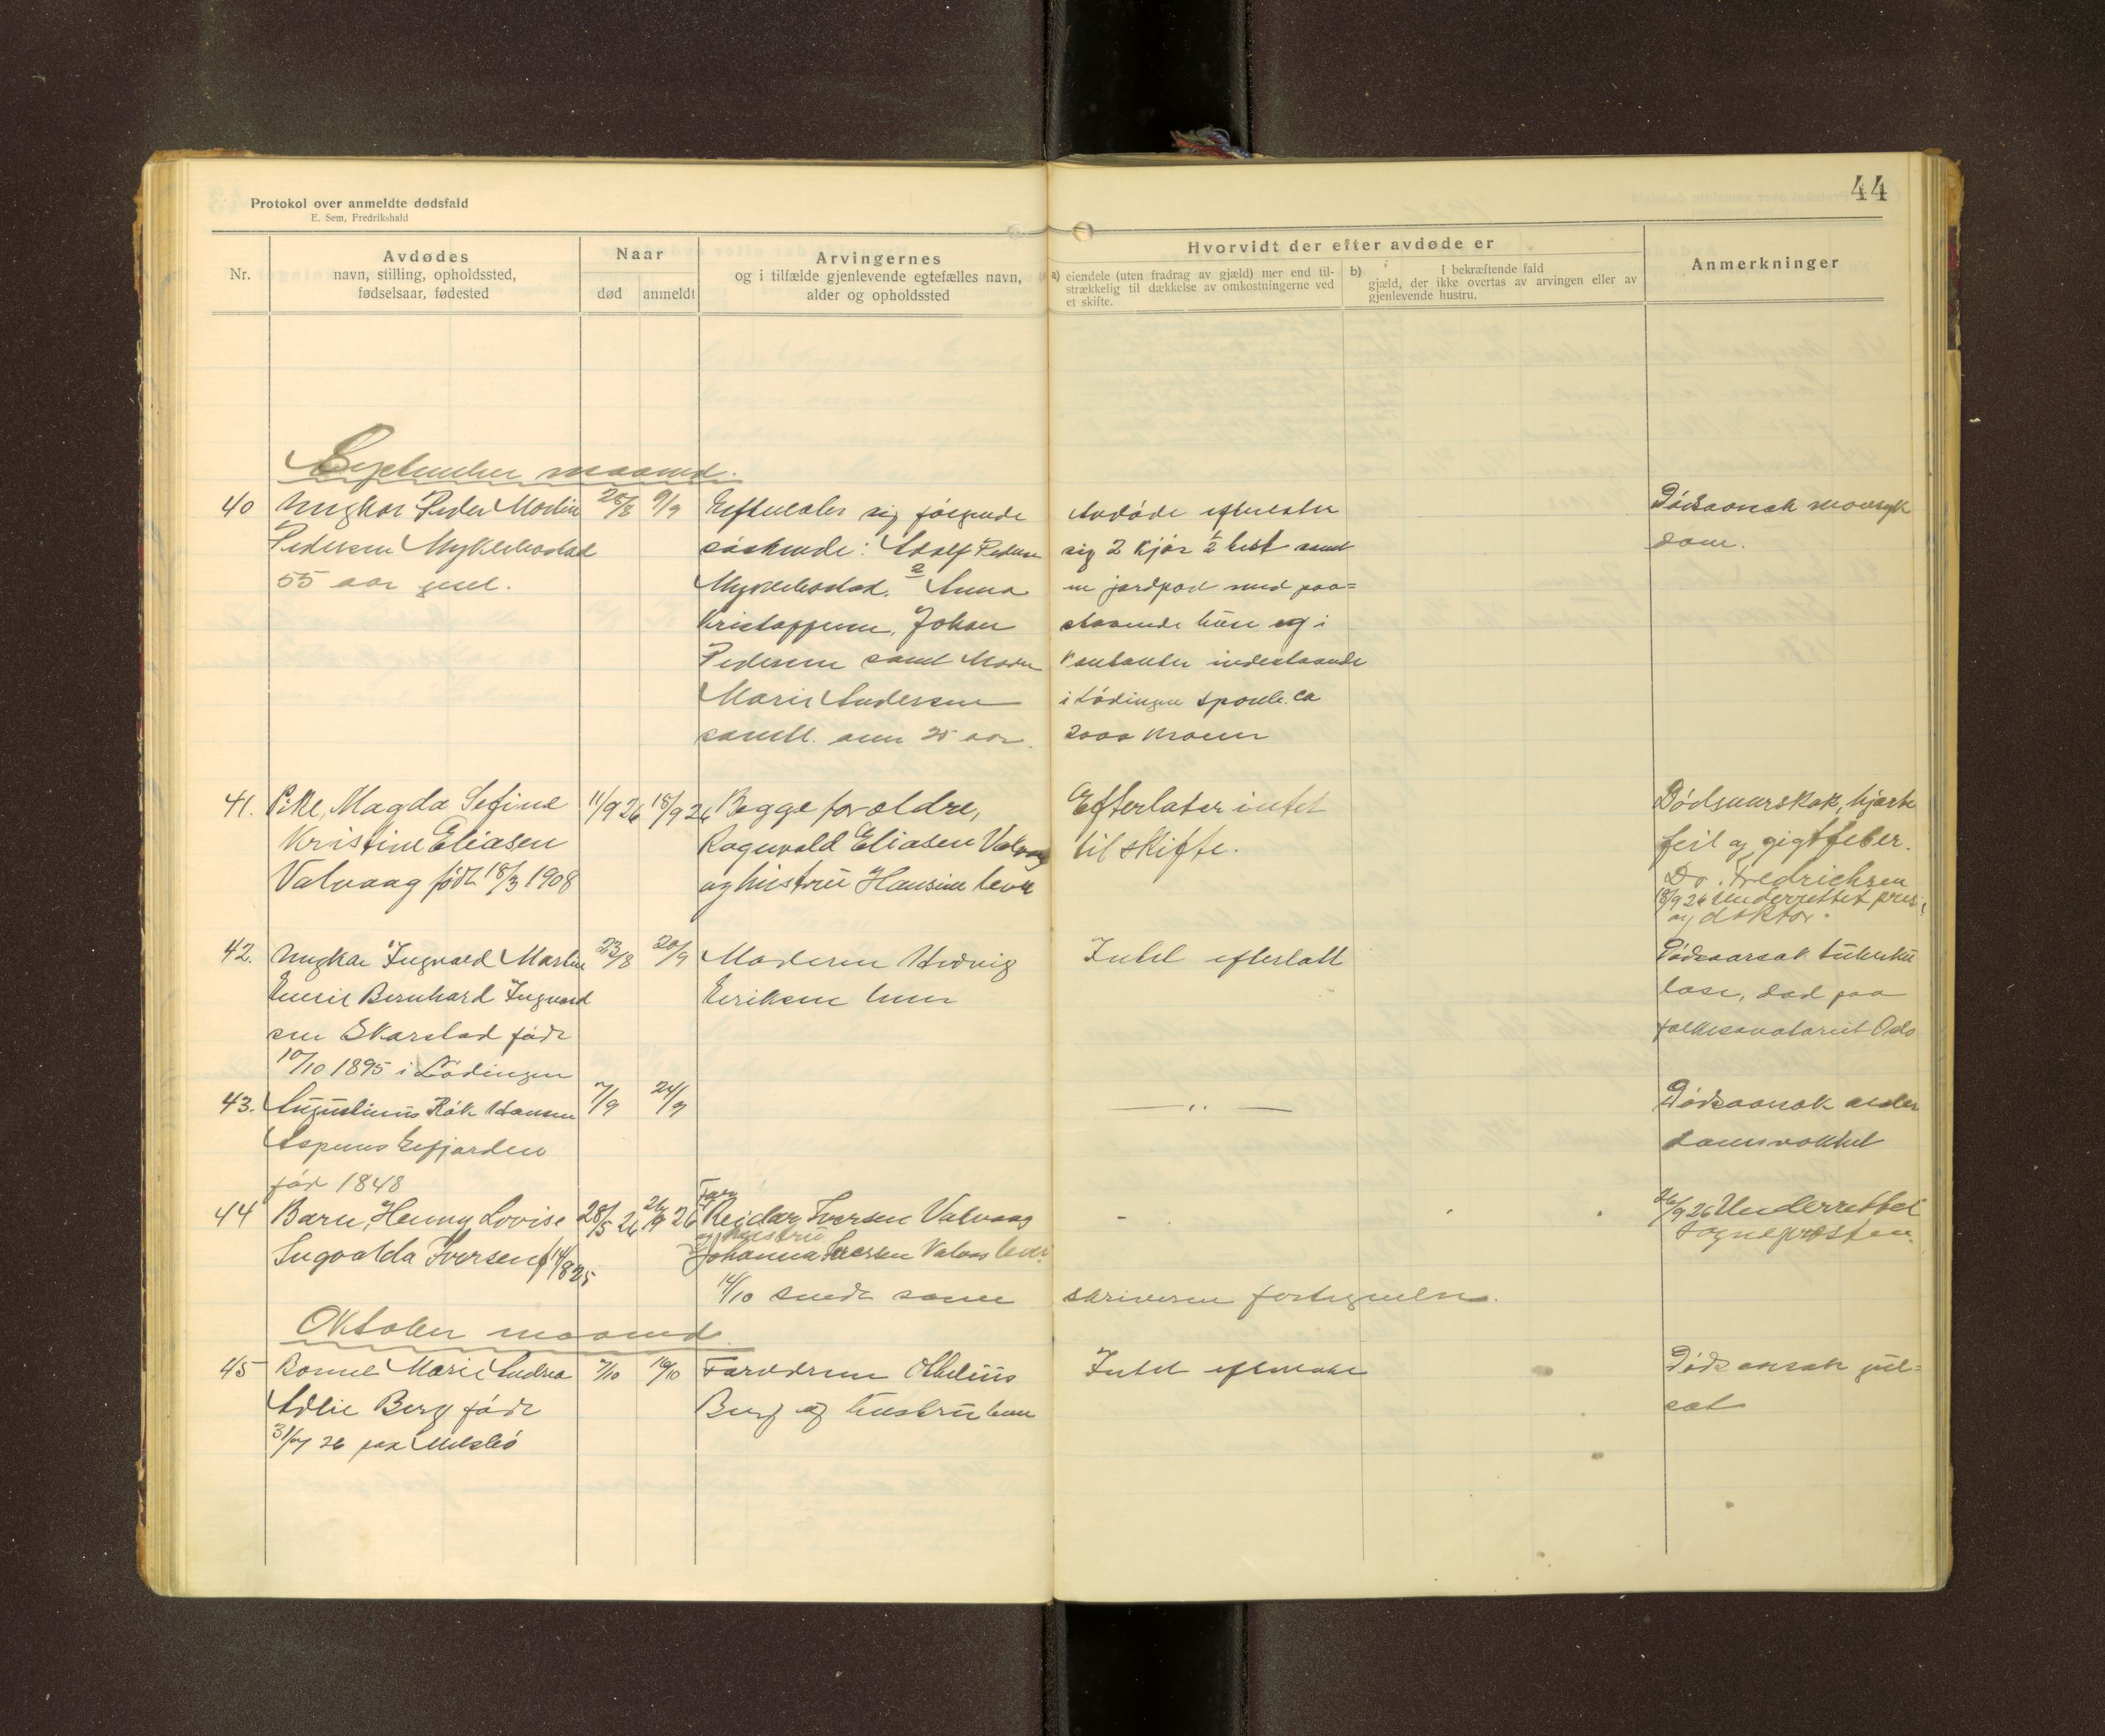 44
Protokol over anmeldte dødsfald
E. Sem, Fredrikshald
Nr.
Avdødes
navn, stilling, opholdssted,
fødselsaar, fødested
Naar
død
anmeldt
Arvingernes
og i tilfælde gjenlevende egtefælles navn,
alder og opholdssted
Hvorvidt der efter avdøde er
a) eiendele (uten fradrag av gjæld) mer end til-
strækkelig til dækkelse av omkostningerne ved
et skifte.
b) I bekræftende fald
gjæld, der ikke overtas av arvingen eller av
gjenlevende hustru.
Anmerkninger
September maaned.
40
Ungkar Peder Martin
Pedersen Myklebostad
55 aar gml.
28/8
9/9
Efterlater sig følgende
søskende: Adolf Pedersen
Myklebostad. Anna
Kristoffersen, Johan
Pedersen samt
Marie Andersen
samtl. over 25 aar.
Avdøde efterlater
sig 2 kjør 1/2 hest samt
en jordpart med paa=
staaende huse og i
kontanter indestaaende
i Lødingen Spareb. ca
2000 kroner
Dødsaarsak mavesyk
dom.
41.
Pike, Magda Sefine
Kristine Eliasen
Valvaag født 18/3 1908
11/9 26
18/9 26
Begge forældre,
Ragnvald Eliasen Valvaag
og hustru Hansine lever
Efterlater intet
til skifte.
Dødsuurskak, hjerte
feil og gigtfeber.
Dr. Fredrichsen
18/9 26 underrettet pres
og doktor.
42.
Ungkar Ingvald Martin
Bernhard Ingvard
sen Skarstad født
10/10 1895 i Lødingen
23/8
20/9
Moderen Hedvig
Eriksen lever
Intet efterlatt
Dødsaarsak tuberku
lose, død paa
folkesanatoriet Oslo
43.
Augustinus Røk Hansen
Aspenes Efjorden
før 1848
7/9
24/9
— ,, —
Dødsaarsak alder
domsvakkel
44
Barn, Henny Lovise
Ingvalda Iversen f 14/8 25
28/5 26
26/9 26
Far
Reidar Iversen Valvaag
og hustru
Johanna Iversen Valvag lever.
-
26/9 26 Underrettet
sogneprosten.
14/10 sendt soren
skriveren fortegnelse.
Oktober maaned.
45
Barnet Marie Andrea
Adlie Berg født
31/7 26 paa
7/10
16/10
Forældrene Othelius
Berg og hustru lever
Intet efterlatt
Dødsaarsak gul=
sot